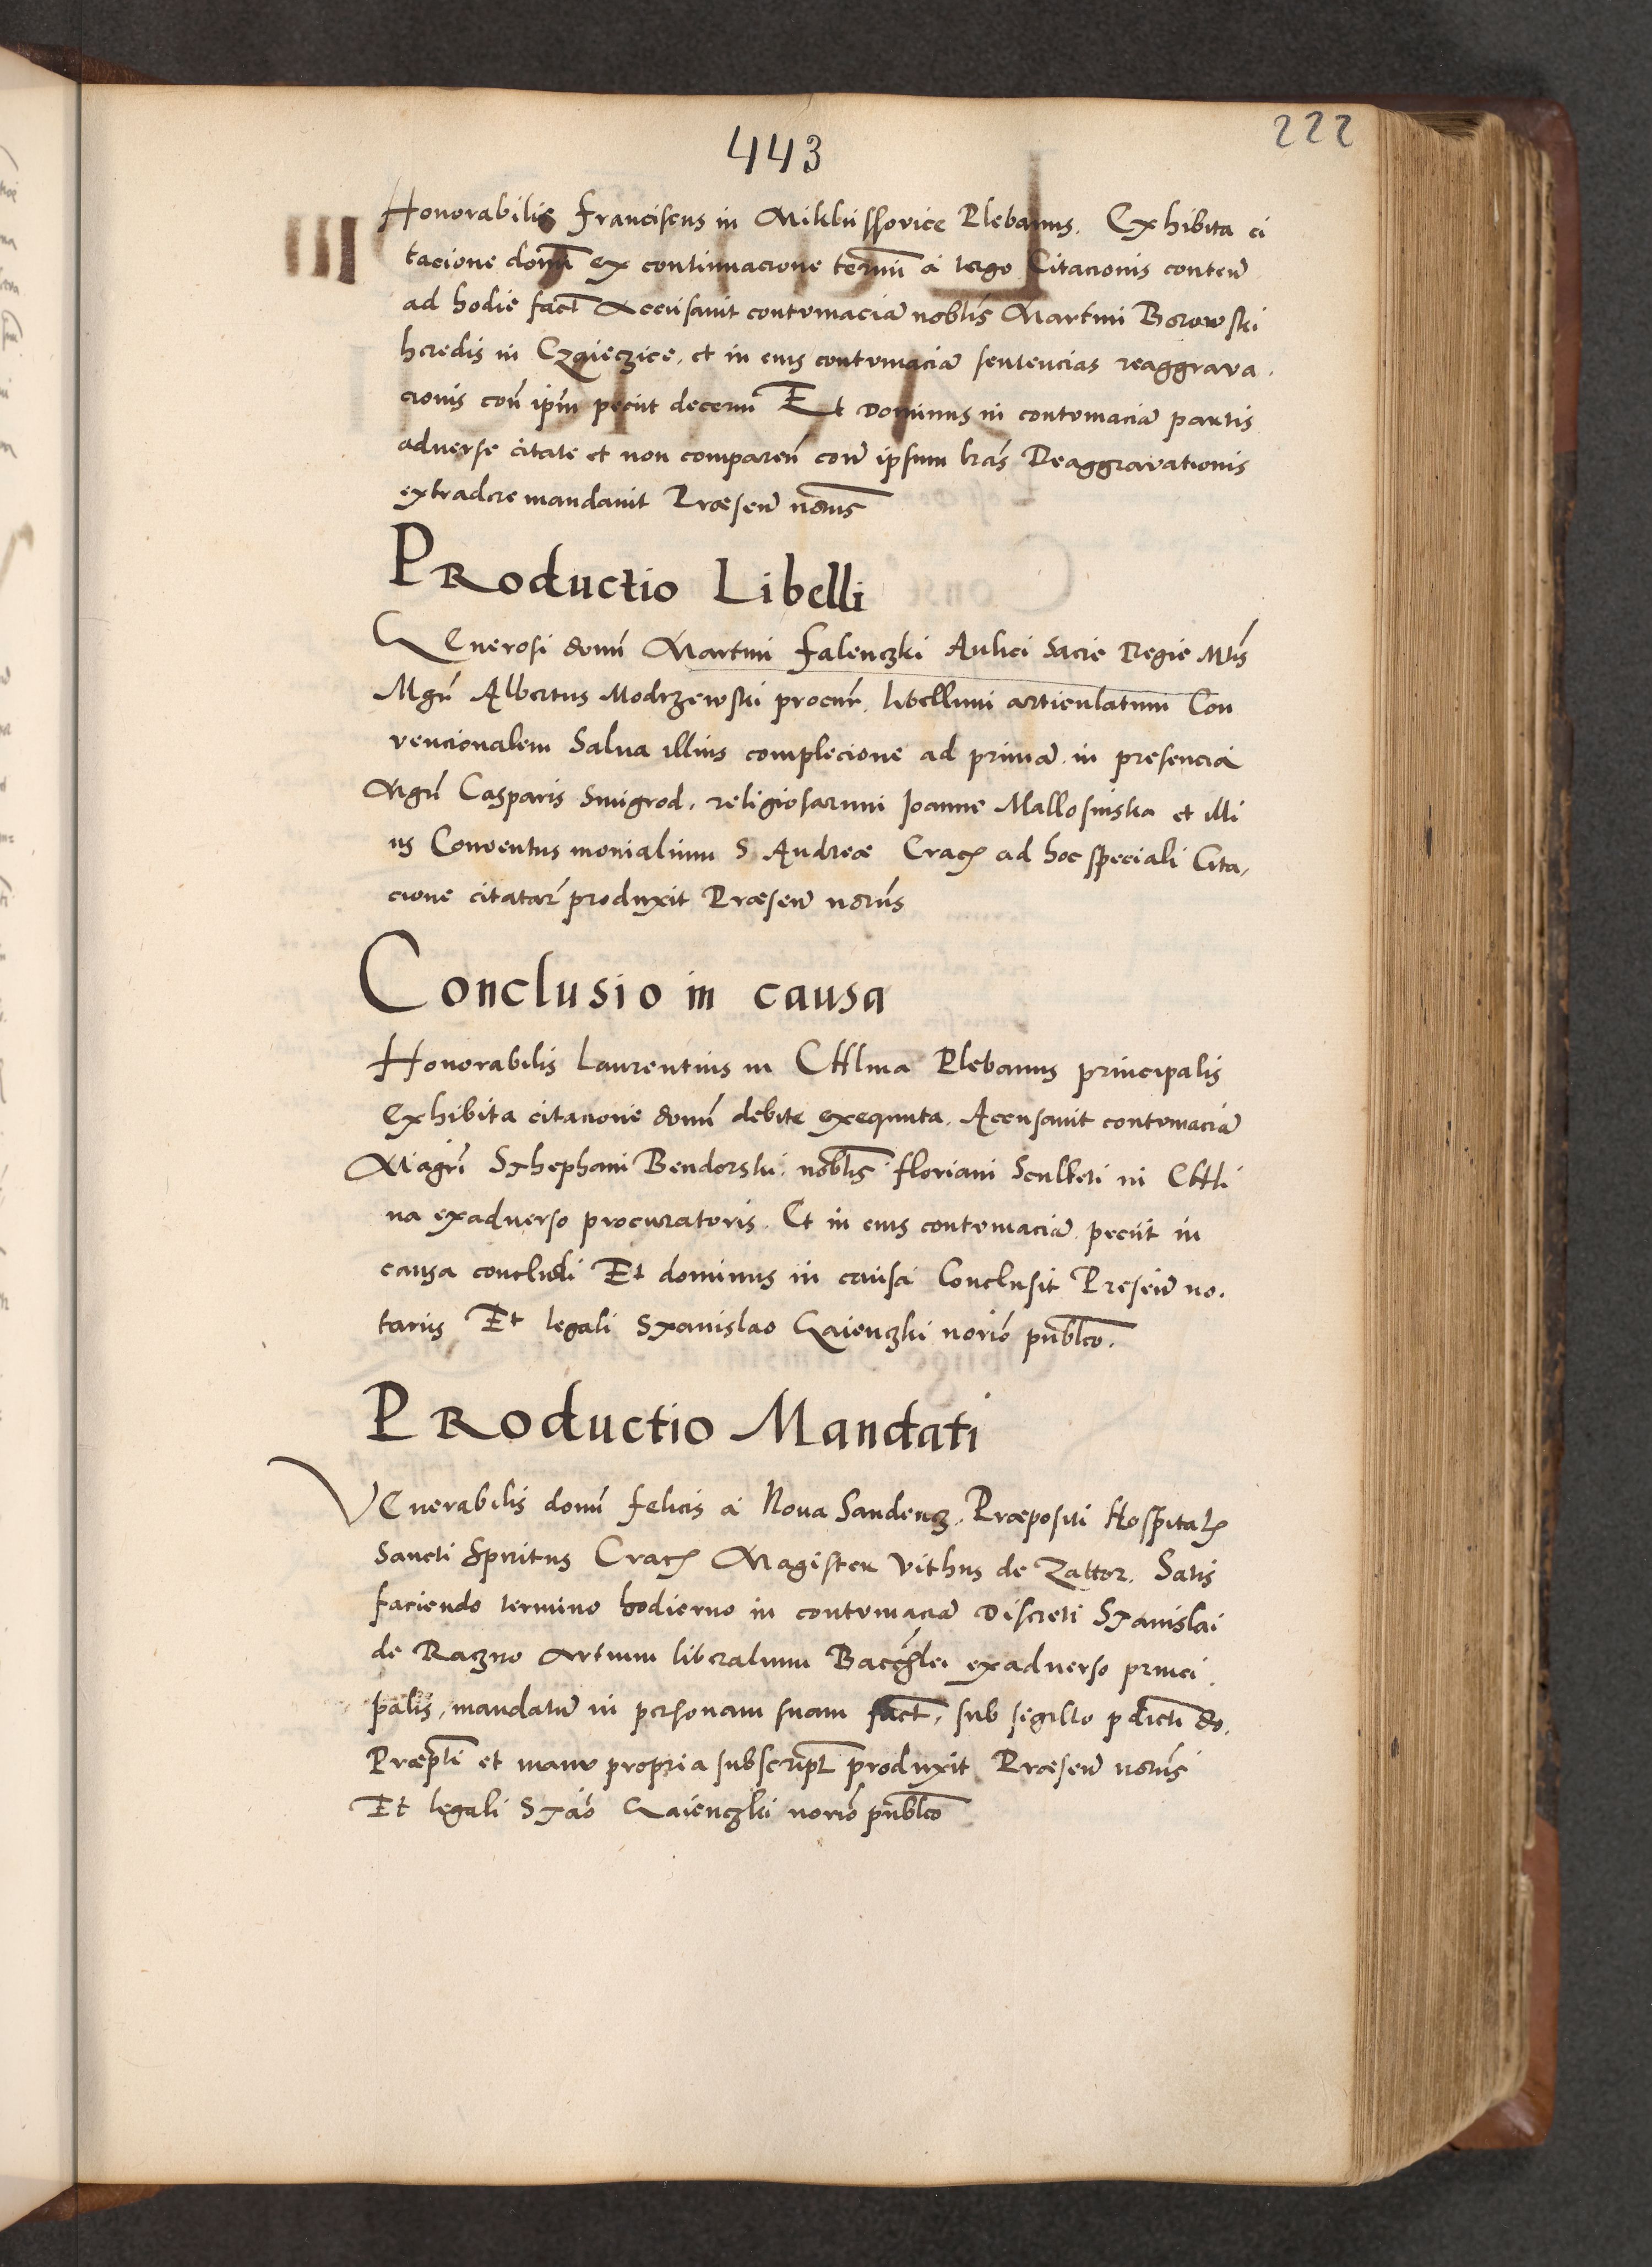 443
222
Honorabilis Franciscus in Miklussovice Plebanus. Exhibita ci
tacione domi ex continuacione termi a tergo Citacionis conten
ad hodie fact Accusavit contumacia noblis Martini Borowski
heredis in Czaieczice, et in eius contumacia sentencias reaggrava
cionis con ipm peciit decerni Et Dominus in contumacia partis
adverse citate et non comparen con ipsum lras Reaggravationis
extradere mandavit Præsen notus
PRoductio Libelli
GEnerosi domi Martini Falenczki Aulici Sacre Regie Mtis
Mgri Albertus Modrzewski procur. libellum articulatum Con
vencionalem Salva illius complecione ad prima in presencia
Mgri Casparis Smigrod. religiosarum Joanne Mallosinska et illi
us Conventus monialium S. Andreæ Crac ad hoc speciali Cita,
cione citatar produxit Præsen norus
Conclusio in causa
Honorabilis Laurentius in Chlma Plebanus principalis
Exhibita citacione domi debite exequuta. Accusavit contumacia
Magri Sthephani Bendorski. noblis Floriani Sculteti in Chli
na exadverso procuratoris. Et in eius contumacia peciit in
causa concludi Et dominus in causa Conclusit Presen no.
tarius Et legali Stanislao Gaienczki norio publco.
PRoductio Mandati
VEnerabilis domi Felicis a Nova Sandencz. Præpositi Hospital
Sancti Spiritus Crac Magister Vithus de Zattor. Satis
faciendo termino hodierno in contumacia Discreti Stanislai
de Raczno Artium liberalium Baccglei exadverso princi.
palis, mandatu in personam suam fact, sub sigillo p dicti do.
Præpti et manu propria subscript produxit Præsen norus
Et legali Stao Gaienczki norio publco